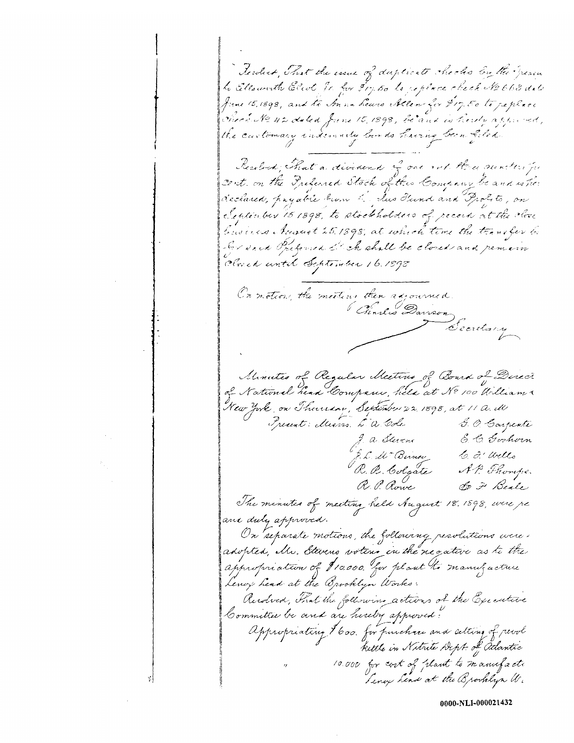 Resolved, That the issue of duplicate checks by the
to Ellsworth for $17.50 to replace check No 663 date
June 15, 1898, and to Anna Lewis Allen for $17.50 to replace
check No 112 dated June 15, 1898, be and is hereby approved,
the customary indemnity bonds having been filed.
Resolved, That a dividend of one and three quarters pr
cent. on the Preferred Stock of this Company be and is her
declared, payable from Surplus Fund and Profits, on
September 15 1898, to stockholders of record at the close
business August 25, 1898, at which time the transfer b
for said Preferred Stock shall be closed and remain
closed until September 16, 1898
On motion, the meeting then adjourned.
Charles Davison
Secretary
Minutes of Regular Meeting of Board of Direc
of National Lead Company, held at No 100 William s
New York, on Thursday, September 22 1898, at 11 a. m
Present: Messrs. L. A. Cole G. O. Carpente
J. A. Stevens E. C. Goshorn
J. L. McBirney C. F. Wells
R. R. Colgate A. P. Thomps
R. P. Rowe E. F. Beale
The minutes of meeting held August 18, 1898, were re
and duly approved.
On separate motions, the following resolutions were
adopted, Mr. Stevens voting in the negative as to the
appropriation of $10,000. for plant to manufacture
Lenox Lead at the Brooklyn Works:
Resolved, That the following actions of the Executive
Committee be and are hereby approved:
Appropriating $600. for purchase and setting of revol
kettle in Nitrite Dept of Atlantic
" 10.000 for cost of plant to manufact
Lenox Lead at the Brooklyn W.
0000-NLI-000021432